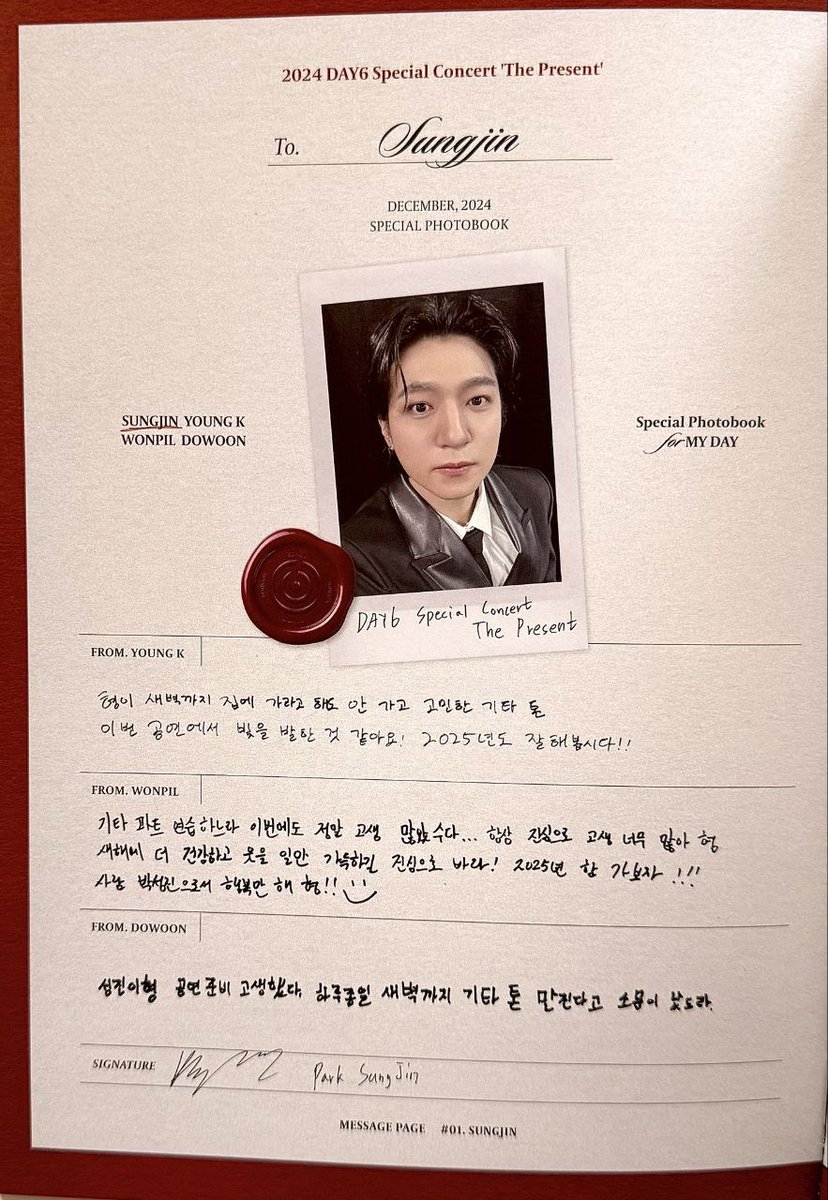 2024 DAY6 Special Concert 'The Present'
To. Sungjin
DECEMBER, 2024
SPECIAL PHOTOBOOK
SUNGJIN YOUNG K
WONPIL DOWOON
Special Photobook
for MY DAY
DAY6 Special Concert
The Present
FROM. YOUNG K
형이 새벽까지 집에 가라고 해도 안 가고 고민한 기타 톤
이번 공연에서 빛을 발한 것 같아요! 2025년도 잘해봅시다!!
FROM. WONPIL
기타 파트 연습하느라 이번에도 정말 고생 많았수다... 항상 진심으로 고생 너무 많아 형
새해에 더 건강하고 웃을 일만 가득하길 진심으로 바라! 2025년 함 가보자 !!!
사람 박성진으로서 행복만 해 형!!
FROM. DOWOON
성진이형 공연준비 고생했다. 하루종일 새벽까지 기타 톤 만진다고 소문이 났드라.
SIGNATURE Park SungJin
MESSAGE PAGE #01. SUNGJIN